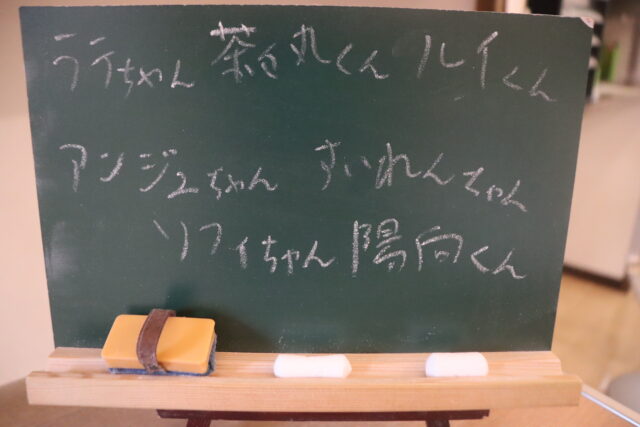 ララちゃん 茶々丸くん ルイくん
アンジュちゃん すいれんちゃん
ソフィちゃん 陽向くん